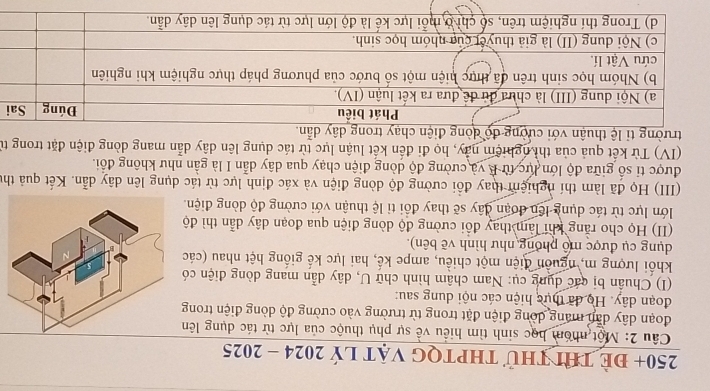 250+ ĐỀ THI THỬ THPTQG VẬT LÝ 2024 – 2025
Câu 2: Một nhóm học sinh tìm hiểu về sự phụ thuộc của lực từ tác dụng lên
đoạn dây dẫn mang dòng điện đặt trong từ trường vào cường độ dòng điện trong
đoạn dây. Họ đã thực hiện các nội dung sau:
(I) Chuẩn bị các dụng cụ: Nam châm hình chữ U, dây dẫn mang dòng điện có
khối lượng m, nguồn điện một chiều, ampe kế, hai lực kế giống hệt nhau (các
dụng cụ được mô phỏng như hình vẽ bên).
(II) Họ cho rằng khi làm thay đổi cường độ dòng điện qua đoạn dây dẫn thì độ
lớn lực từ tác dụng lên đoạn dây sẽ thay đổi tỉ lệ thuận với cường độ dòng điện.
(III) Họ đã làm thí nghiệm thay đổi cường độ dòng điện và xác định lực từ tác dụng lên dây dẫn. Kết quả thu
được tỉ số giữa độ lớn lực từ và cường độ dòng điện chạy qua dây dẫn I là gần như không đổi.
(IV) Từ kết quả của thí nghiệm này, họ đi đến kết luận lực từ tác dụng lên dây dẫn mang dòng điện đặt trong từ
trường tỉ lệ thuận với cường độ dòng điện chạy trong dây dẫn.
Phát biểu Đúng Sai
a) Nội dung (III) là chưa đủ để đưa ra kết luận (IV).
b) Nhóm học sinh trên đã thực hiện một số bước của phương pháp thực nghiệm khi nghiên
cứu Vật lí.
c) Nội dung (II) là giả thuyết của nhóm học sinh.
d) Trong thí nghiệm trên, số chỉ ở mỗi lực kế là độ lớn lực từ tác dụng lên dây dẫn.
N
S